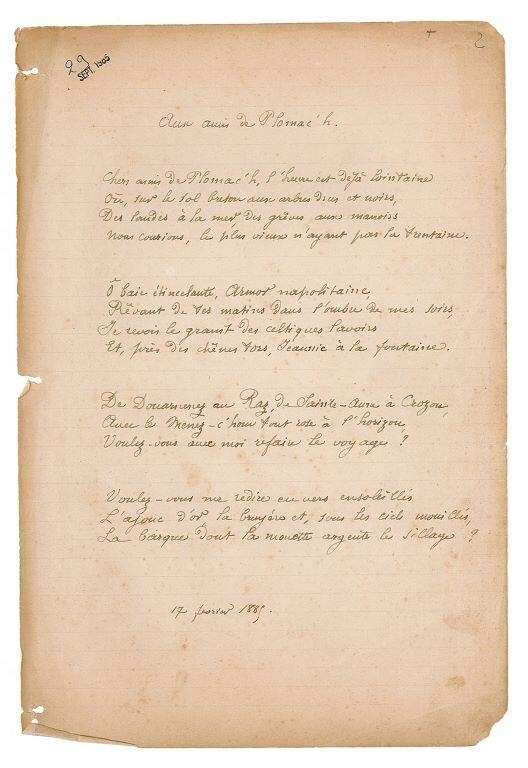 29
SEPT. 1905
+ 2
Aux amis de Plomac'h.
Chers amis de Plomac'h, l'heure est déjà lointaine
Où, sur le sol breton aux arbres drus et noirs,
Des landes à la mer, des grèves aux manoirs
Nous courions, le plus vieux n'ayant pas la trentaine.
Ô baie étincelante, Armor napolitaine
Rêvant de tes matins dans l'ombre de mes soirs,
Je revois le granit des celtiques lavoirs
Et, près des chênes tors, Jeannie à la fontaine.
De Douarnenez au Raz, de Sainte-Anne à Crozon
Avec le Menez-c'hom tout rose à l'horizon,
Voulez-vous avec moi refaire le voyage ?
Voulez-vous me redire en vers ensoleillés
L'ajonc d'or, la bruyère et, sous les ciels mouillés,
La barque dont la mouette argente le sillage ?
17 février 1885.